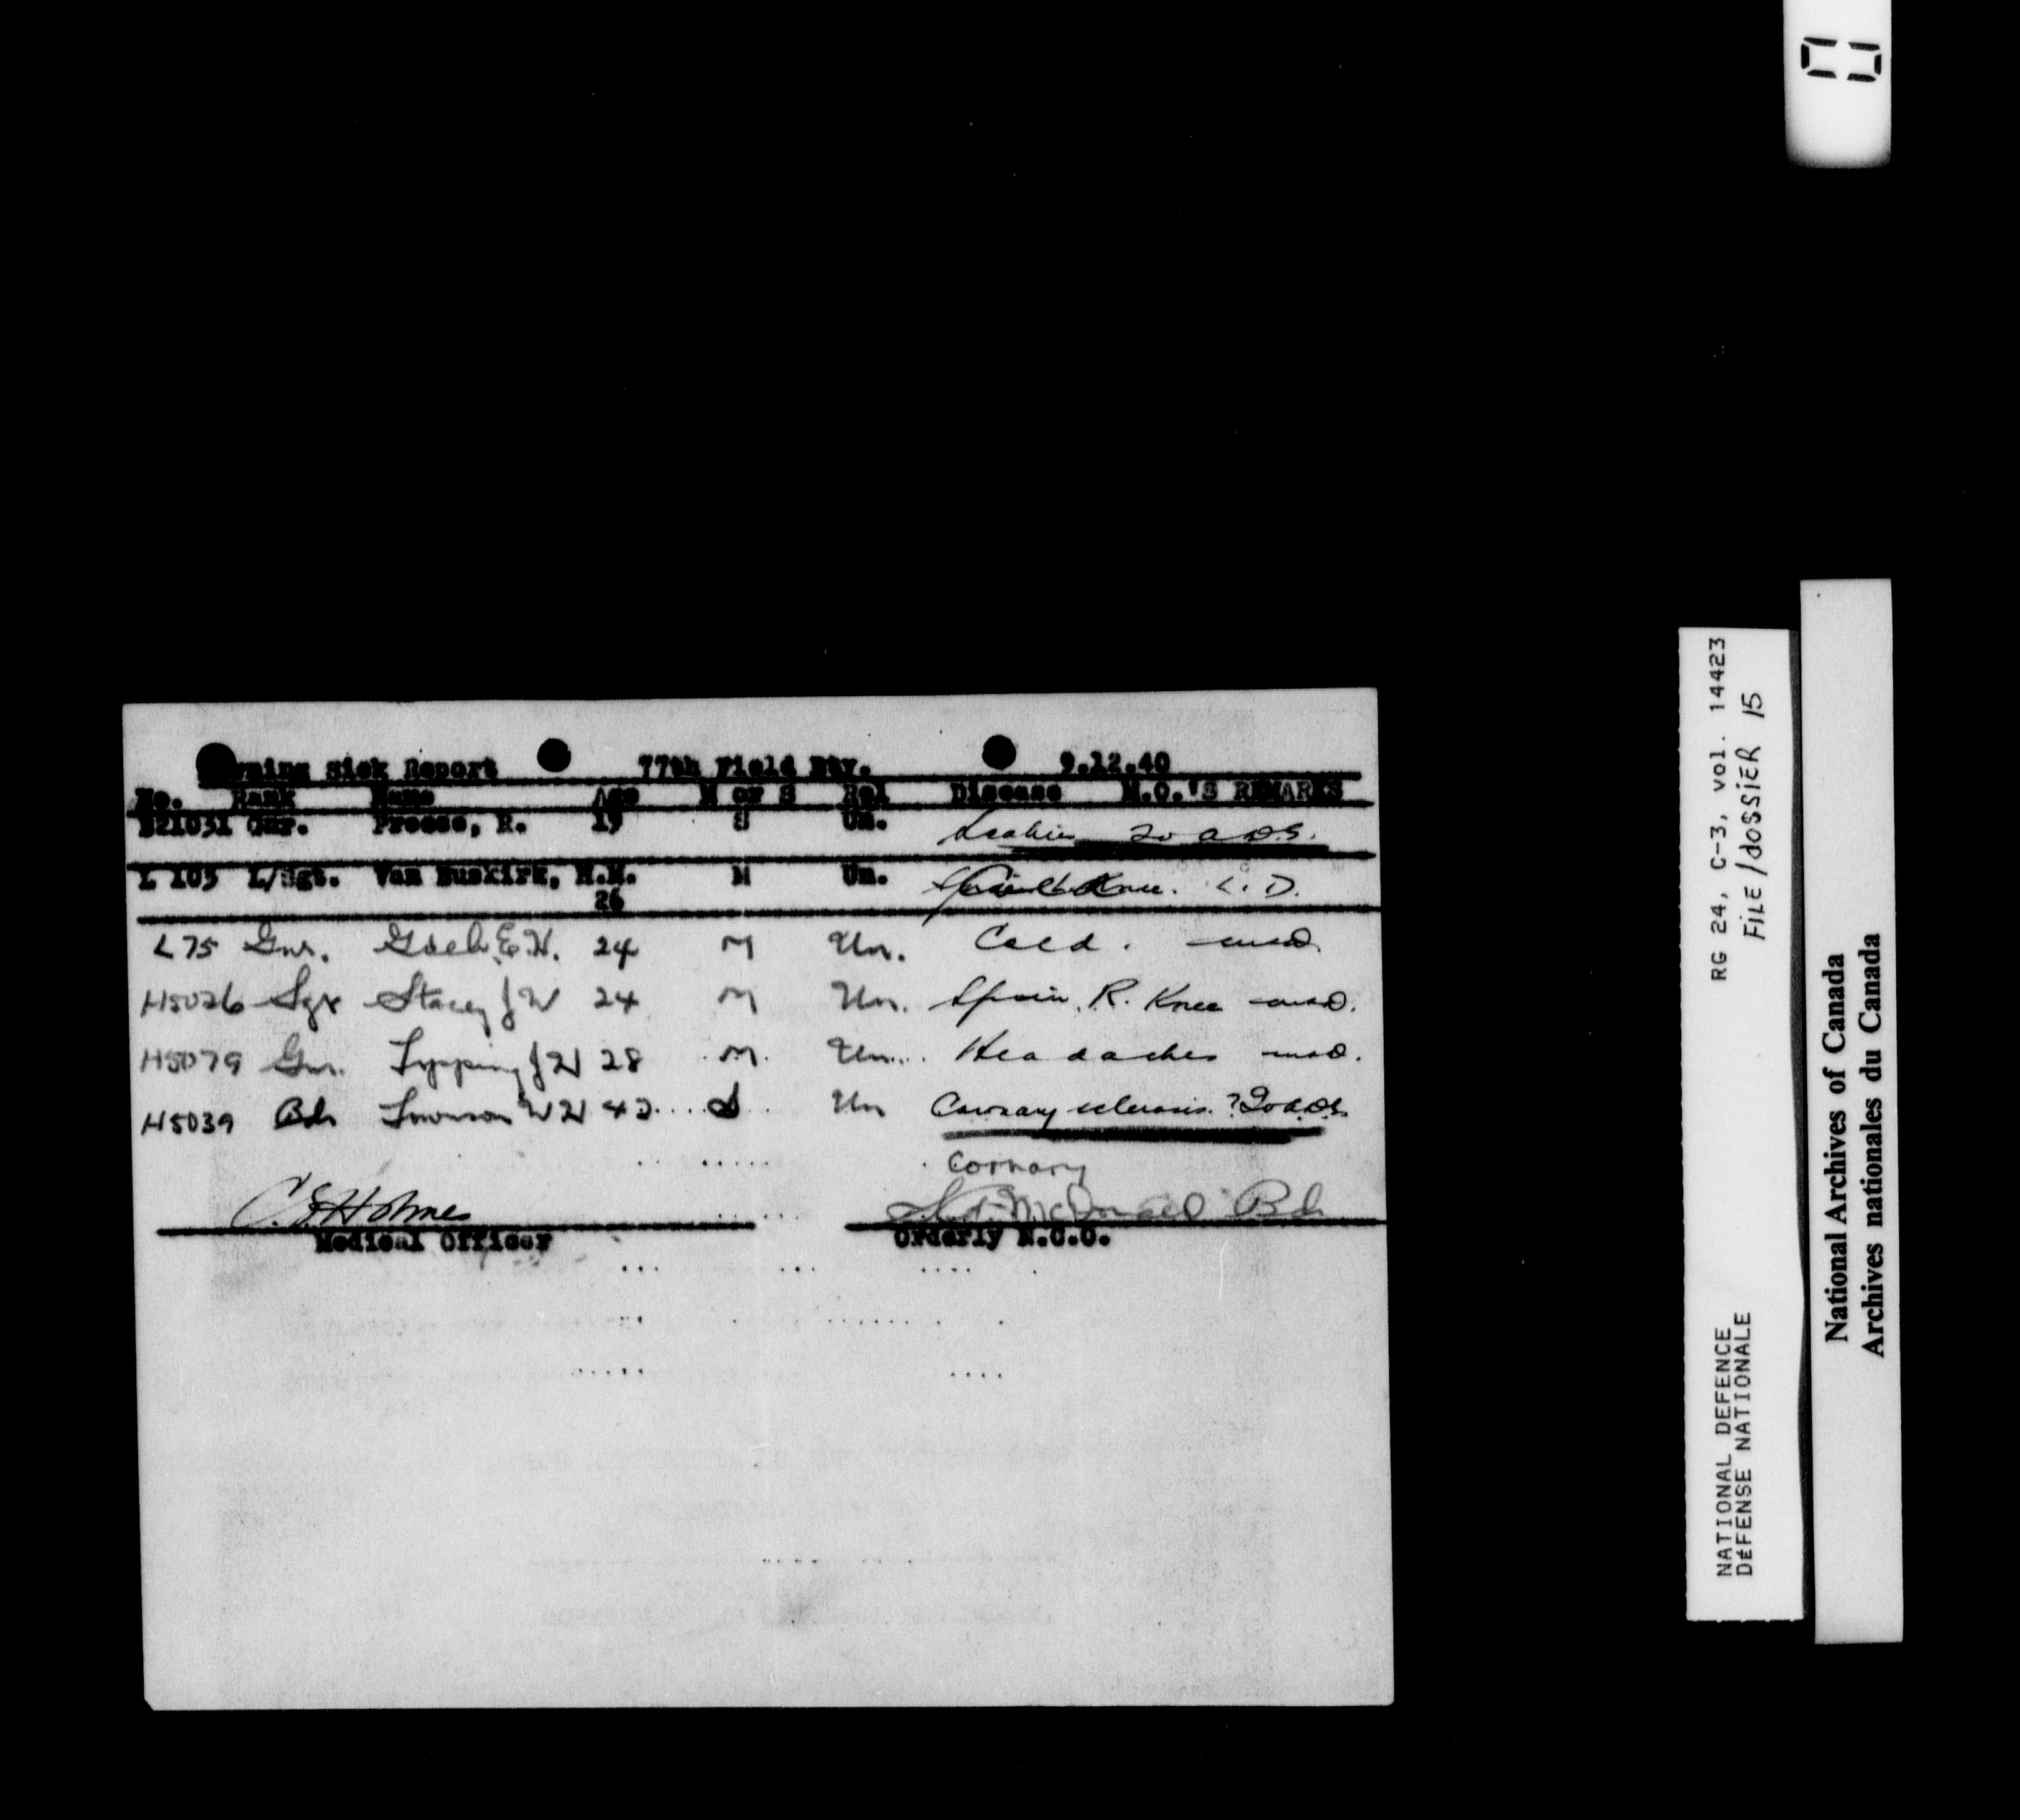 Morning Sick Report 77th Field Bty. 9.12.40
No. Rank Name Age M or S Rel Disease M.O.'S REMARKS
Gnr. Preece, R. 19 S Un. Scabies To A.D.S.
L 103 L/Sgt. Van Buskirk, H.M. M Un. Knee. L.D.
26
L75 Gnr. E.H. 24 M Un. Cold. M&D.
H5026 Sgt Stacey J W 24 M Un. Sprain R. Knee M&D.
H5079 Gnr. Topping J W 28 M. Un. Headaches M&D.
H5039 Bdr W W 42 S Un Coronary sclerosis ? To A.D.S.
Cornary
C.E. Holmes McDonald Bdr
Medical Officer Orderly N.C.O.
RG 24, C-3, vol. 14423
FILE/dossier 15
NATIONAL DEFENCE
DÉFENSE NATIONALE
National Archives of Canada
Archives nationales du Canada